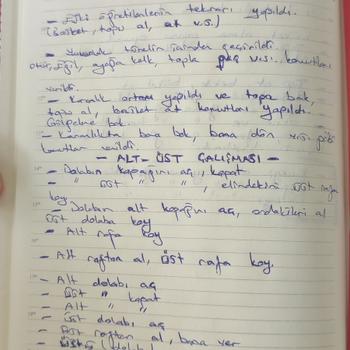 - Eski öğretilenlerin tekrarı yapıldı.
(basket, topu al, at v.s.)
- Yumurluk tünelin içinden geçirildi.
Otur, eğil, ayağa kalk, topla vs. komutları
verildi.
- Karanlık ortam yapıldı ve topa bak,
topu al, basket at komutları yapıldı.
- Karanlıkta bana bak, bana dön v.s. gibi
komutlar verildi
- ALT - ÜST ÇALIŞMASI -
- Dolabın kapağını aç, kapat
- " üst " " , elindekini üst rafa
koy.
- Dolabın alt kapağını aç, ordakileri al
üst dolaba koy
- Alt rafa koy
- Alt raftan al, üst rafa koy.
- Alt dolabı aç
- Üst " kapat
- Alt " "
- Üst dolabı aç
- Üst raftan al, bana ver